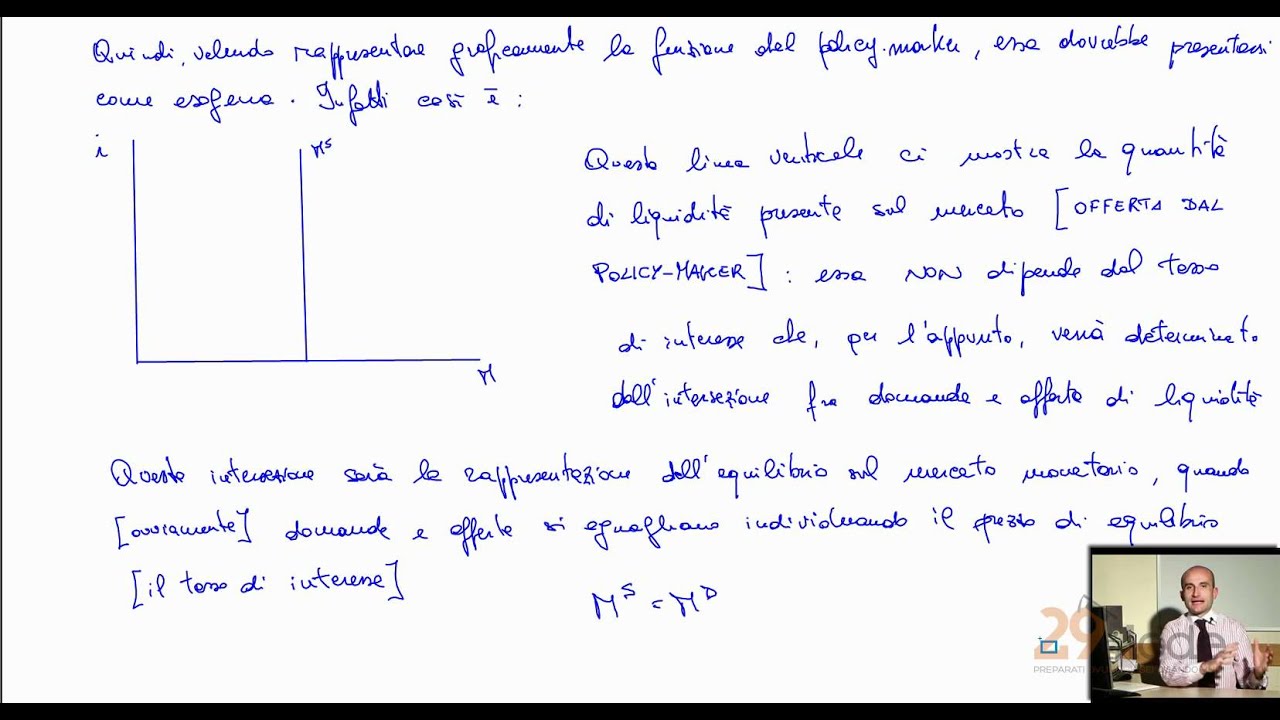 Quindi, volendo rappresentare graficamente la funzione del policy-maker, essa dovrebbe presentarsi
come esogena. Infatti così è:
i
M^S
M
Questa linea verticale ci mostra la quantità
di liquidità presente sul mercato [OFFERTA DAL
POLICY-MAKER]: essa NON dipende dal tasso
di interesse che, per l'appunto, verrà determinato
dall'intersezione fra domanda e offerta di liquidità
Questa intersezione sarà la rappresentazione dell'equilibrio sul mercato monetario, quando
[ovviamente] domanda e offerta si eguagliano individuando il prezzo di equilibrio
[il tasso di interesse]
M^S = M^D
29
PREPARATI